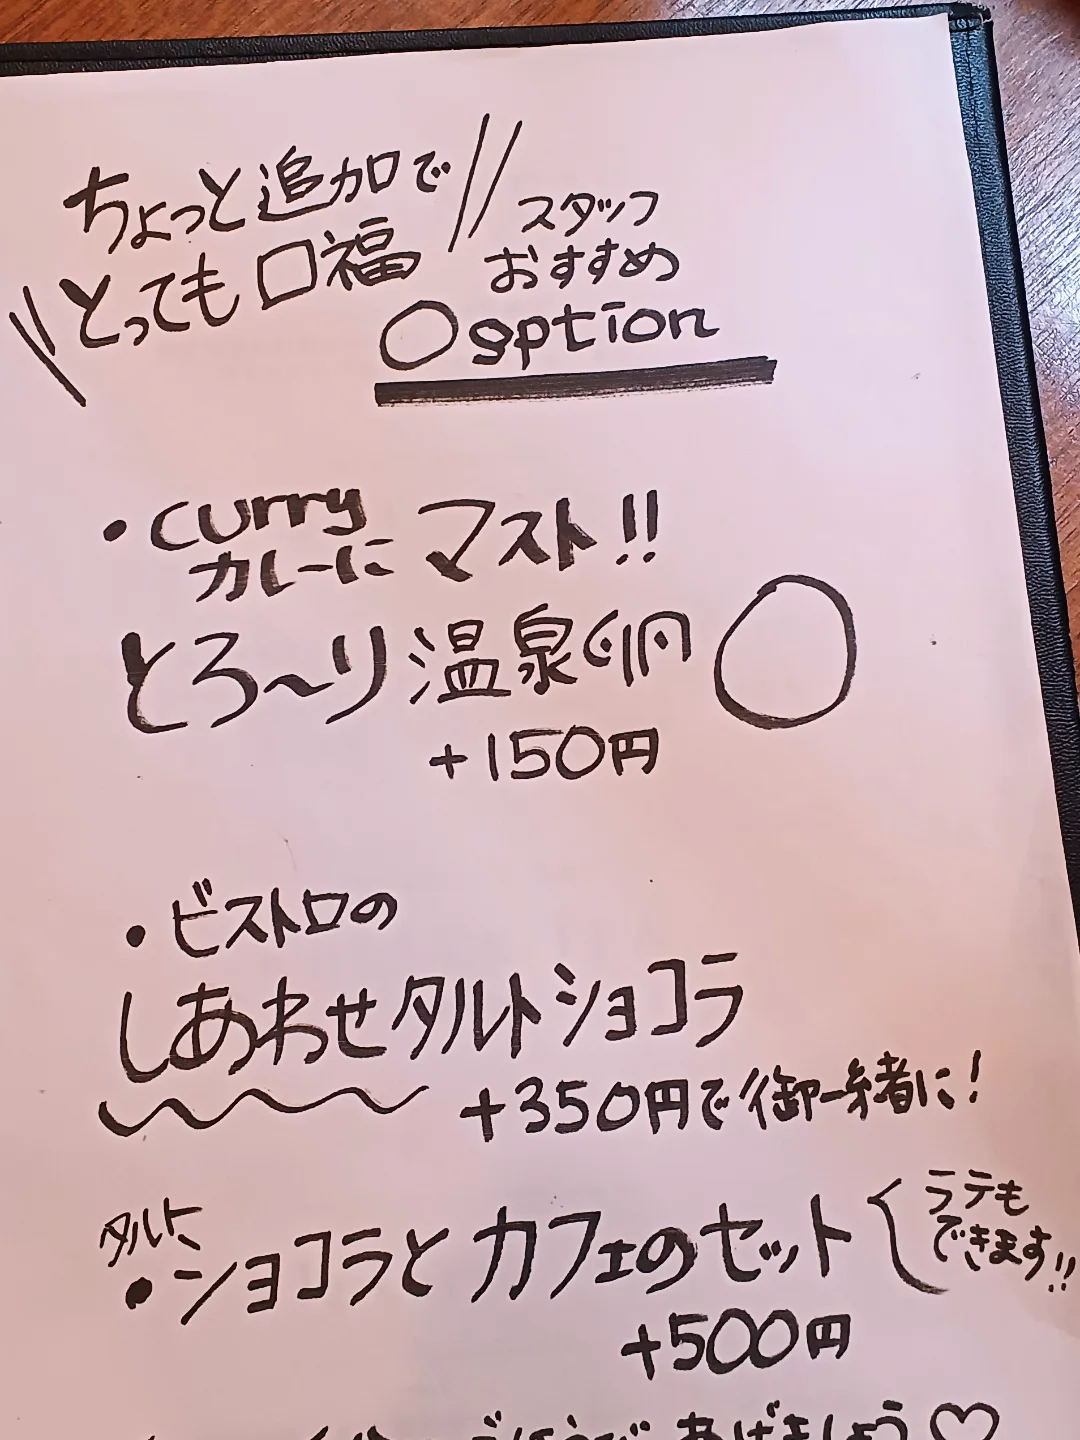 ちょっと追加で
とっても口福
スタッフ
おすすめ
Osption
・curry
カレーにマスト!!
とろ〜り温泉卵
+150円
・ビストロの
しあわせタルトショコラ
+350円で御一緒に!
タルト
・ショコラとカフェのセット
ラテも
できます!!
+500円
あげましょう♡